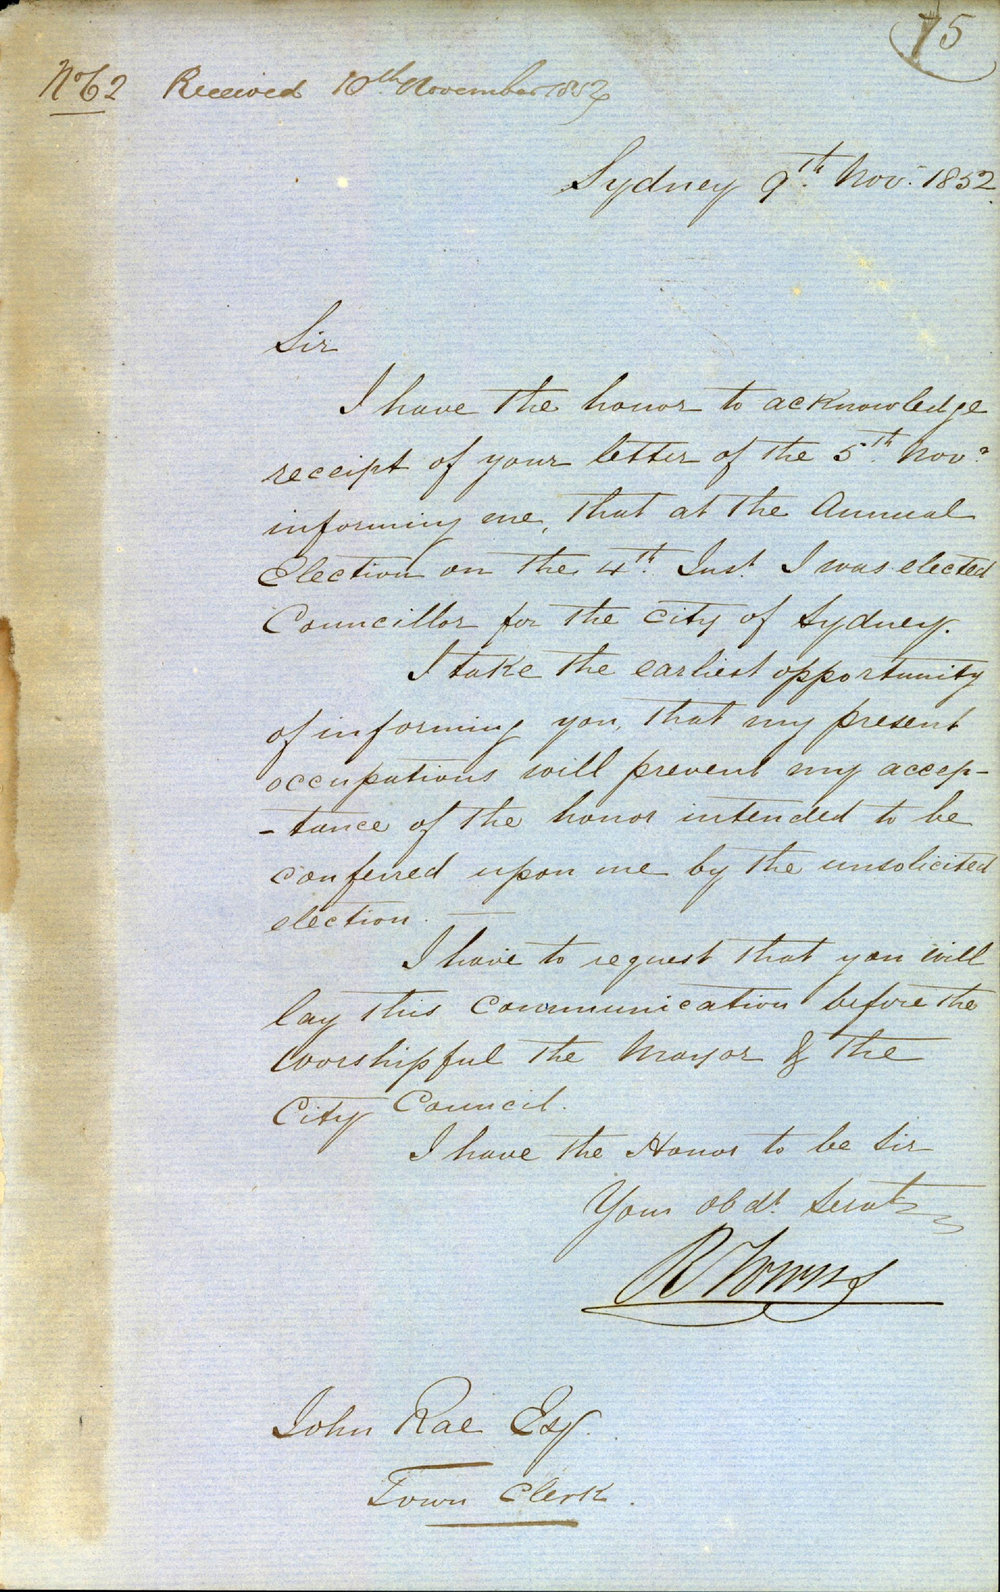 75
No 62 Received 10th November 1852
Sydney 9th Nov. 1852
Sir
I have the honor to acknowledge
receipt of your letter of the 5th Novr
informing me, that at the Annual
Election on the 4th Inst. I was elected
Councillor for the city of Sydney.
I take the earliest opportunity
of informing you, that my present
occupations will prevent my accep-
-tance of the honor intended to be
conferred upon me by the unsolicited
election.
I have to request that you will
lay this communication before the
Worshipful the Mayor & the
City Council.
I have the Honor to be Sir
Your obdt. Servt
R Towns
John Rae Esq.
Town Clerk.